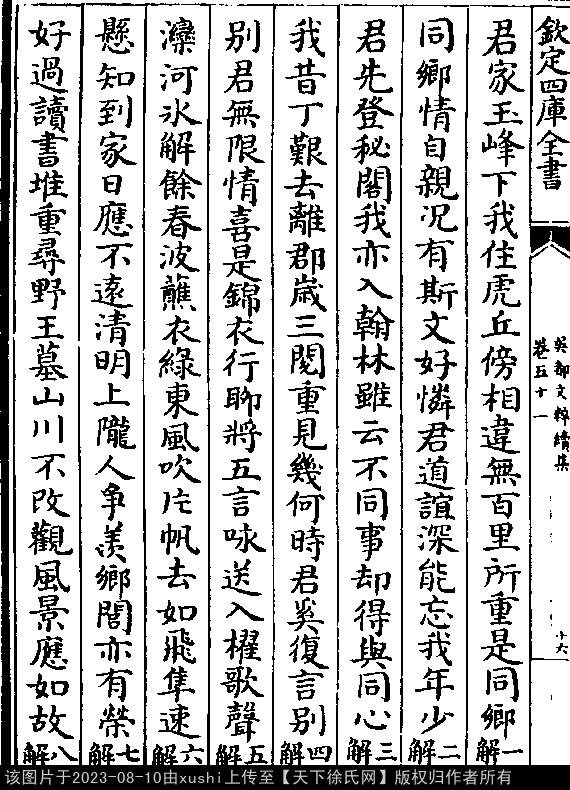 欽定四庫全書
吳都文粹續集
卷五十一
十六
君家玉峰下我住虎丘傍相違無百里所重是同鄉一解
同鄉情自親况有斯文好憐君道誼深能忘我年少二解
君先登秘閣我亦入翰林雖云不同事却得與同心三解
我昔丁艱去離郡歲三閱重見幾何時君奚復言别四解
别君無限情喜是錦衣行聊將五言咏送入櫂歌聲五解
灤河氷解餘春波蘸衣綠東風吹片帆去如飛隼速六解
懸知到家日應不遠清明上隴人争羨鄉閭亦有榮七解
好過讀書堆重尋野王墓山川不改觀風景應如故八解
该图片于2023-08-10由xushi上传至【天下徐氏网】版权归作者所有